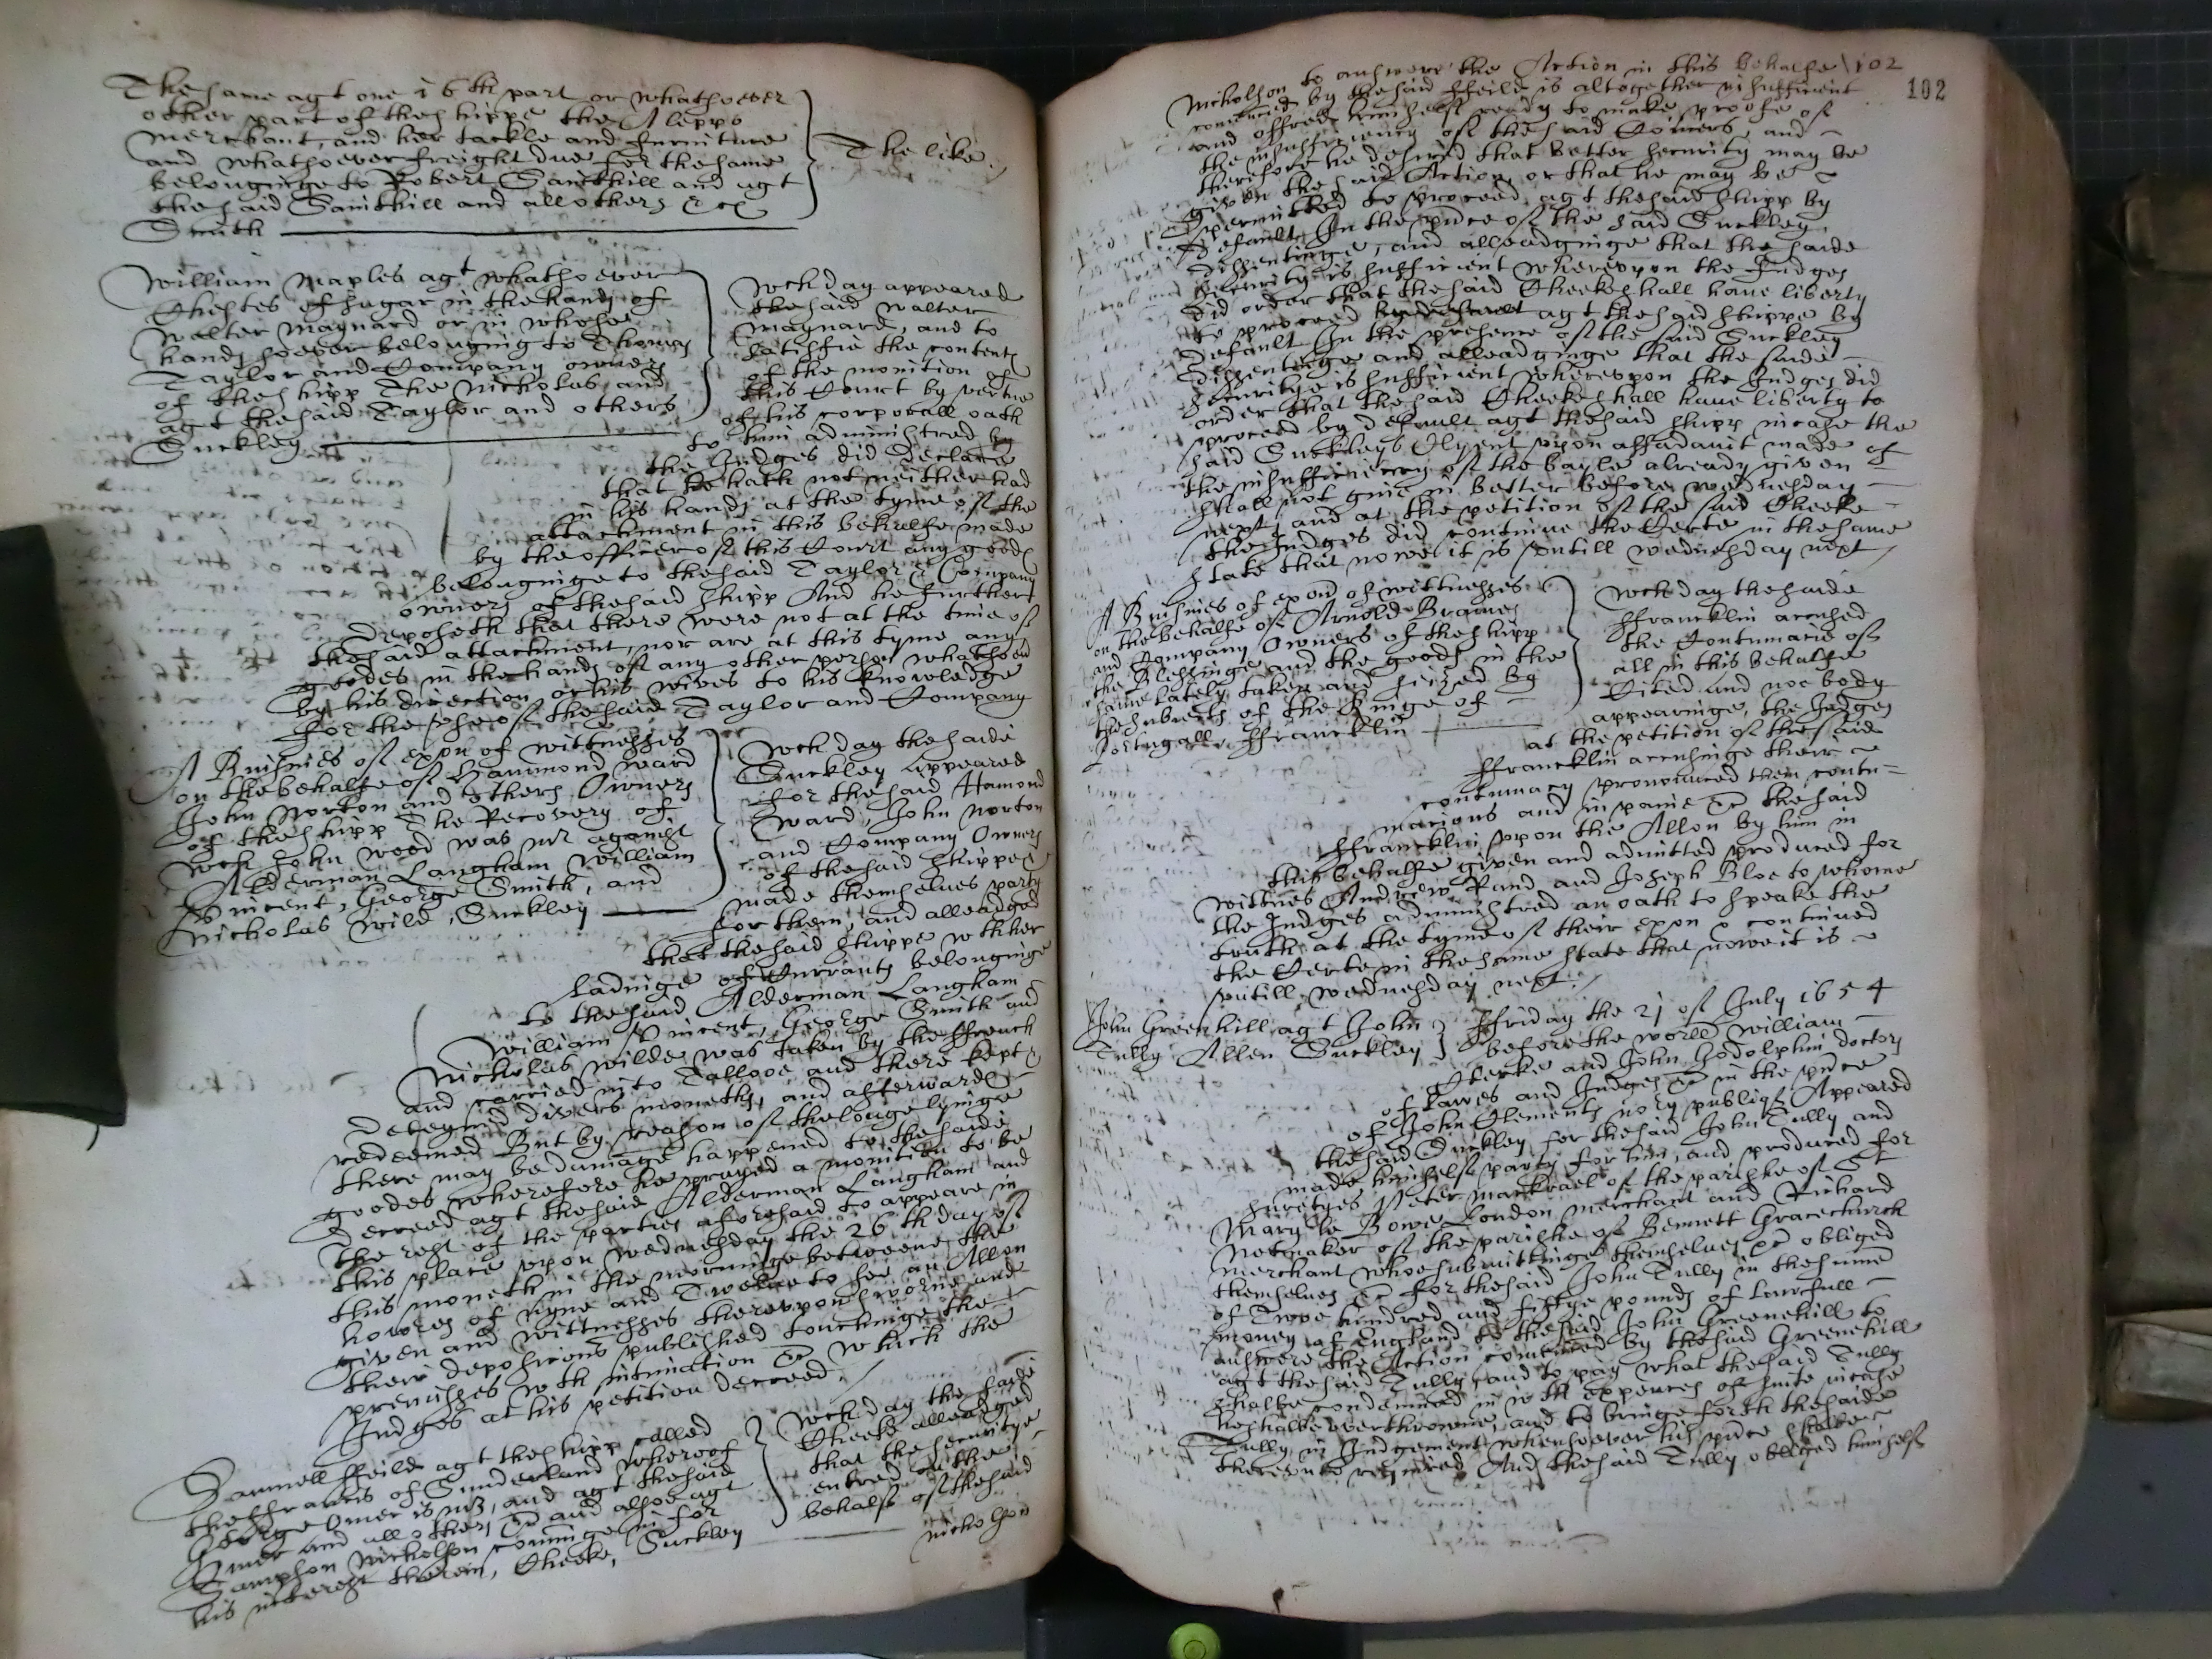 The same agt one 16th part or whatsoever
other part of the shippe the Aleppo
merchant, and her tackle and furniture
and whatsoever freight due for the same
belonginge to Robert Sainthill and agt
the said Sainthill and all others &c
Smith
The like
William Maples agt whatsoever
Chestes of sugar in the hands of
Walter Maynard or in whose
hands soever belonging to Thomas
Taylor and Company owners
of the shipp The Nicholas and
agt the said Taylor and others
Suckley
wch day appeared
the said Walter
Maynard, and to
satisfie the contents
of the monition of
this Court by vertue
of his corporall oath
to him administred by
the Judges did declare
that he hath not neither had
in his hands at the tyme of the
attachment in this behalfe made
by the officer of this Court any goods
belonginge to the said Taylor & Company
owners of the said shipp And he further
deposeth that there were not at the time of
the said attachment, nor are at this tyme any
goodes in the hands of any other person whatsoever
by his direction or his wives to his knowledge
for the use of the said Taylor and Company
A Buisnies of exon of wittnesses
on the behalfe of Hammond Ward
John Norton and others Owners
of the shipp The Recovery of
wch John Wood was mr against
Alderman Langham William
Vincent, George Smith, and
Nicholas Wild, Suckley
wch day the saide
Suckley appeared
for the said Hamond
Ward, John Norton
and Company Owners
of the said shippe
made themselves party
for them, and alleadged
that the said shippe wth her
ladinge of Currants belonginge
to the said Alderman Langham
William Vincent, George Smith and
Nicholas Wilde was taken by the ffrench
and carried into Tallooe and there kept
deteyned divers moneths, and afterwards
redeemed But by reason of the longe lyinge
there may be damage happened to the saide
goodes wherefore he prayed a monition to be
decreed agt the saide Alderman Langham and
the rest of the parties aforesaid to appeare in
this place upon Wednesday the 26th day of
this moneth in the morninge betweene the
howres of Nyne and Twelve to see an Allon
given and wittnesses thereupon sworne and
their depositions published touchinge the
premisses wth intimation &c which the
Judges at his petition decreed.
Samuell ffeild agt the shipp called
the ffrancis of Sunderland whereof
George Omer is mr, and agt the said
Omer and all others &c and alsoe agt
Sampson Nicholson comminge in for
his interest therein, Cheeke, Suckley
wch day the saide
Cheeke alleadged
that the securitye
entred on the
behalf of the said
Nicholson
102
102
Nicholson to answere the Action in this behalfe
commenced by the said ffeild is altogether insufficient
and offred himselfe ready to make proofe of
the insufficiency of the said Owners, and
therefore he desired that better security may be
given the said Action or that he may be
permitted to proceed agt the said shipp by
default, In the pnce of the said Suckley
dissentinge, and alleadginge that the saide
security is sufficient whereupon the Judges
did order that the said Cheeke shall have liberty
to proceed by default agt the said shippe by
default In the presence of the said Suckley
dissentinge and alleadginge that the saide
securitye is sufficient whereupon the Judges did
order that the said Cheeke shall have liberty to
proceed by default agt the said shipp in case the
said Suckleys Clyent upon affadavit made of
the insufficiency of the bayle already given
shall not give in better before Wednesday
next, and at the petition of the said Cheeke
the Judges did continue the Certe in the same
state that nowe it is untill Wednesday next
A Buisnies of exon of wittnesses
on the behalfe of Arnold Brames
and Company Owners of the shipp
the Blessinge and the goods in the
same lately taken and seized by
the subiects of the Kinge of
Portingall ffrancklin
wch day the saide
ffrancklin accused
the Contumacie of
all in this behalfe
Cited and noe body
appearinge, the Judges
at the petition of the said
ffrancklin accusinge their
contumacy pronounced them contu=
macious and in paine &c the said
ffrancklin upon the Allon by him in
this behalfe given and admitted produced for
wittnes Andrew Rand and Joseph Bloe to whome
the Judges administred an oath to speake the
truth at the tyme of their exon & continued
the Certe in the same state that nowe it is
untill Wednesday next.
John Greenhill agt John
Tully Allen Suckley
ffriday the 21 of July 1654
before the worll William
Clerke and John Godolphin doctors
of Lawes and Judges &c in the pnce
of John Clements no:ry publiqe Appeared
the said Suckley for the said John Tully and
made himselfe party for him, and produced for
suretyes Peter Mackrael of the parishe of St
Mary le Bowe London merchant and Richard
Netmaker of the parishe of Bennett Gracechurch
merchant whoe submittinge themselves &c obliged
themselves &c for the said John Tully in the summe
of Twoe hundred and fiftye pounds of lawfull
money of England to the said John Greenehill to
answere the Action commenced by the said Greenehill
agt the said Tully, and to pay what the said Tully
shalbe condemned in wth expences of suite in case
he shalbe overthrowne, and to bringe forth the saide
Tully in Judgement whensoever his pnce shalbe
thereunto required And the said Tully obliged himselfe